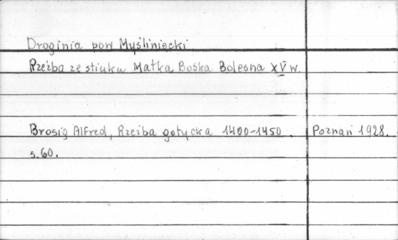 Droginia pow Myśliniecki
Rzeźba ze stiuku Matka Boska Bolesna XV w.
Brosig Alfred, Rzeźba gotycka 1400-1450. Poznań 1928.
s. 60.